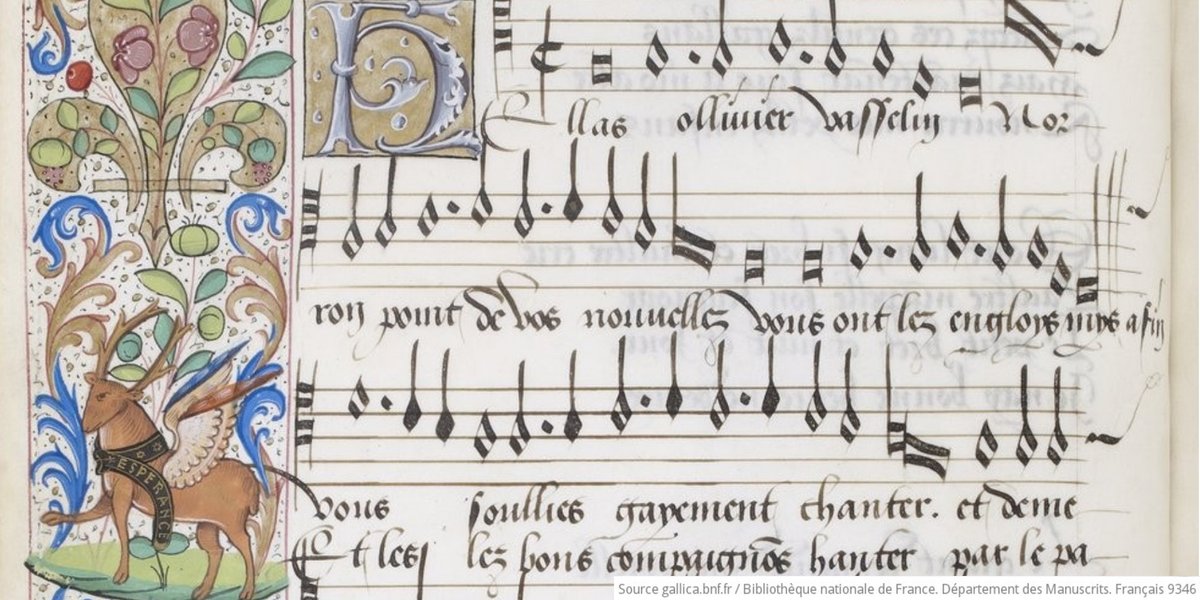 Hellas ollivier vasselin Nor
roy point de vos nouvelles vous ont lez engloys mys a fin
vous soullies gayement chanter. et deme
Et les lez bons compaignõs hanter par le pa
ESPERANCE
Source gallica.bnf.fr / Bibliothèque nationale de France. Département des Manuscrits. Français 9346